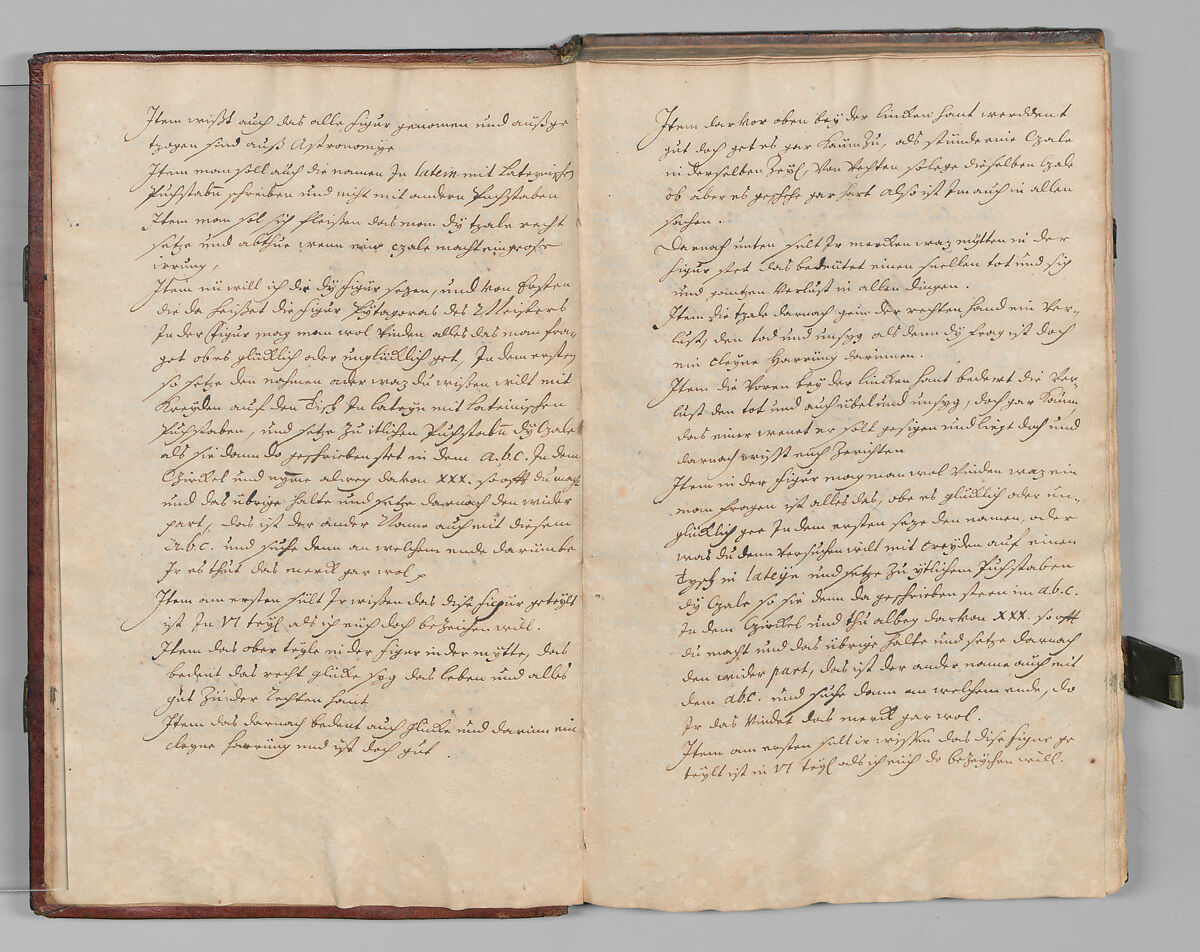 Item wißt auch das alle figur genomen und außge
tzogen sind auß Astronomiye
Item man soll auch die namen In latein mit Lateynischen
Puchstabn schreiben und nicht mit andern Puchstaben
Item man sol sich fleissen das man dy tzale recht
setze und abthue wenn ein czale macht ein gross
irrung,
Item nu will ich dir dy figur setzen, und von Ersten
die da heisset die figur Pytagoras des Meisters
In der Figur mag man wol vinden alles das man fra-
get ob es glücklich oder unglücklich get, In dem ersten
so setze den nahmen oder waz du wissen wilt mit
Kreyden auf den Tisch In lateyn mit Lateinischen
Puchstaben, und setze zu itlichen Puchstabn dy Czale
als sie dann do geschrieben stet in dem a.b.c. In dem
Czirckel und nyme alweg davon XXX. so offt du magst
und das übrige halte und setze darnach den wider
part, das ist der ander Name auch mit diesem
a.b.c. und suche denn an welchem ende darumbe
Ir es thut das merck gar wol
Item am ersten sült Ir wissen das dise figur geteylt
ist In VI teyl als ich euch doch bezeichen will.
Item das ober teyle in der figur in der mytte, das
bedeut das recht glücke syg das leben und alles
gut Zu der rechten hant
Item das darnach bedeut auch glücke und darinn ein
cleyne harrung und ist doch gut.
Item darvor oben bey der lincken hant werddent
gut doch get es gar kaum zu, als stunde eine Czale
in derselben Zeyl, von rechten so lege dieselben Czale
ob aber es geschehe gar hart also ist Im auch in allen
sachen.
Darnach unten solt Ir mercken waz mytten in der
figur stet das bedeutet einen snellen tot und sig
und gantzen Verlust in allen dingen.
Item die tzale darnach gein der rechten hand ein Ver-
lust, den tod und unsyg als denn dy frag ist doch
ein cleyne Harrung darinnen.
Item die voren bey der lincken hant bedewt die Ver-
lust den tot und auch übel und unsyg, doch gar kaum,
das einer wenet er solt gesigen und ligt doch und
darnach wysst euch Zerichten
Item in der figur mag man wol vinden waz ein
man fragen ist alles das, ob es glücklich oder un-
glücklich gee In dem ersten seze den namen, oder
was du denn versuchen wilt mit creyden auf einen
Tysch in lateyn und setze zu ytlichem Puchstaben
dy Czale so sie denn da geschrieben steen im a.b.c.
In dem Czirckel und thu albeg darvon XXX. so offt
du macht und das übrige halte und setze darnach
den wider part, das ist der ander name auch mit
dem abc. und suche dann an welchem ende, do
Ir das vindet das merck gar wol.
Item am ersten sult ir wissen das dise figur ge
teylt ist in VI teyl als ich euch do bezeychen will.